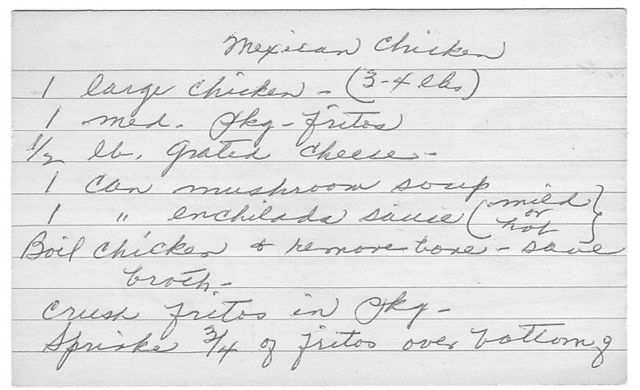 Mexican Chicken
1 large chicken - (3-4 lbs)
1 med. pkg - fritos
1/2 lb. grated cheese -
1 can mushroom soup
1 " enchilada sauce (mild or hot)
Boil chicken & remove bone - save
broth -
Crush fritos in pkg -
Sprinke 3/4 of fritos over bottom of